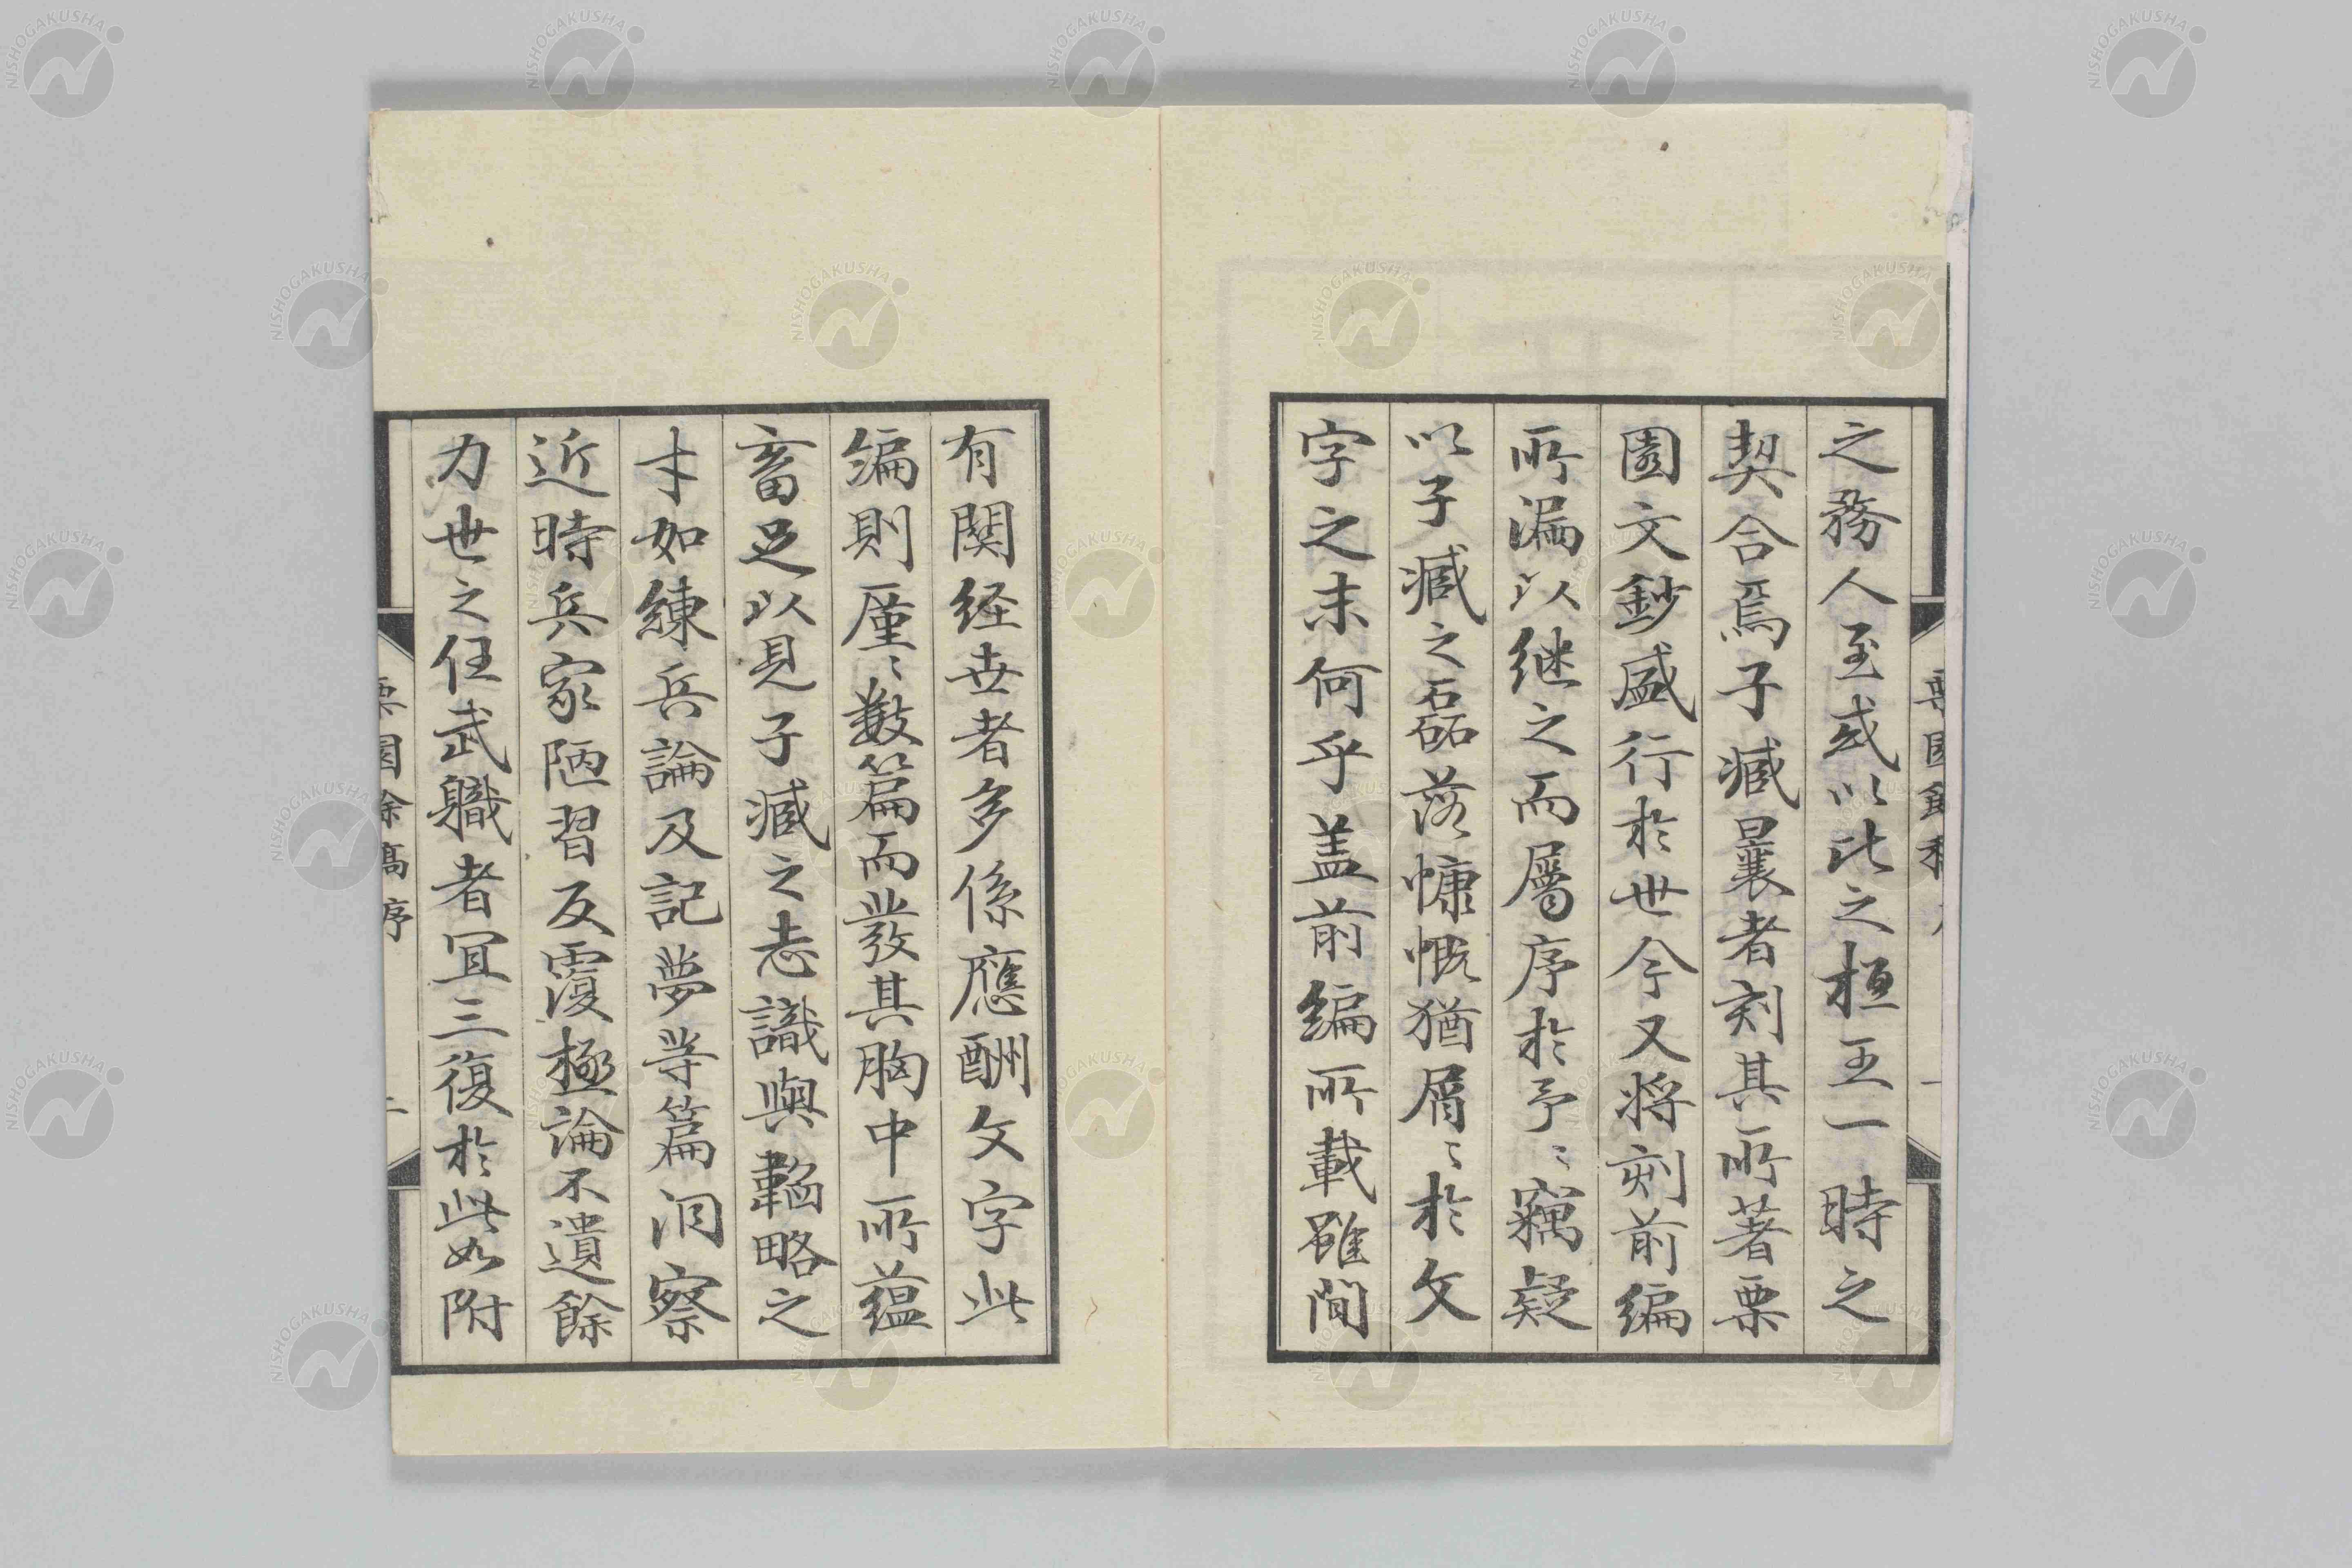 之務人至或以比之桓王一時之
契合焉子臧曩者刻其所著栗
園文鈔盛行於世今又将刻前編
所漏以継之而属序於予〻竊疑
以子臧之磊落慷慨猶屑〻於文
字之末何乎盖前編所載雖間
有関経世者多係應酬文字此
編則廑〻数篇而發其胸中所蕴
畜足以見子臧之志識與韜略之
才如練兵論及記夢等篇洞察
近時兵家陋習反覆極論不遺餘
力世之任武職者宜三復於此如附
栗園餘稿序
二
NISHOGAKUSHA